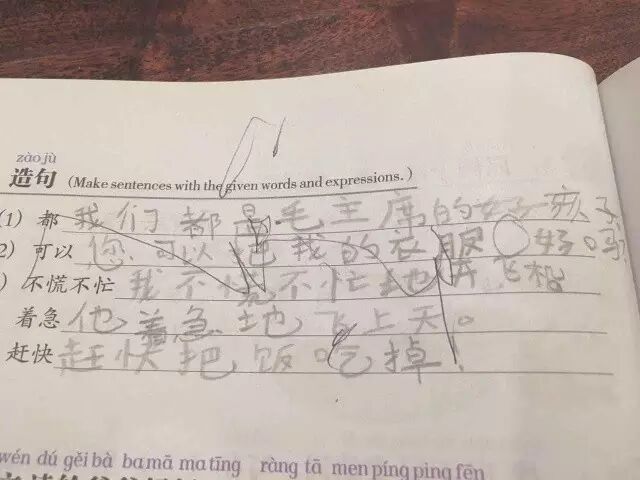 zào jù
造句 (Make sentences with the given words and expressions.)
(1) 都 我们都是毛主席的好孩子
2) 可以 您可以把我的衣服 好吗
) 不慌不忙 我不慌不忙地开飞机
着急 他着急地飞上天。
赶快 赶快把饭吃掉.
wén dú gěi bà ba mā ma tīng ràng tā men píng ping fēn